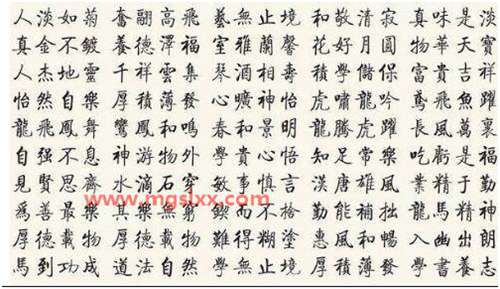 人淡如菊 奮翮高飛 藝無止境 和敬清寂 真味是淡
真金不鍍 養德澤福 室雅蘭馨 花好月圓 物華天寶
人杰地靈 千祥雲集 琴酒相壽 積學儲保 富貴吉祥
怡然自樂 厚積薄發 心曠神怡 虎嘯龍吟 鳶飛魚躍
龍飛鳳舞 鸞鳳和鳴 春和景明 龍騰虎躍 長風萬裏
自强不息 神游物外 學貴心悟 知足常樂 吃虧是福
見賢思齊 水滴石穿 敏事慎言 漢唐雄風 業精於勤
www.mgslxx.com
爲善最樂 其樂無窮 鍥而不捨 勤能補拙 龍馬精神
厚德載物 厚德載物 難得糊塗 惠風和暢 入幽出朗
馬到功成 道法自然 學無止境 厚積薄發 學書養志